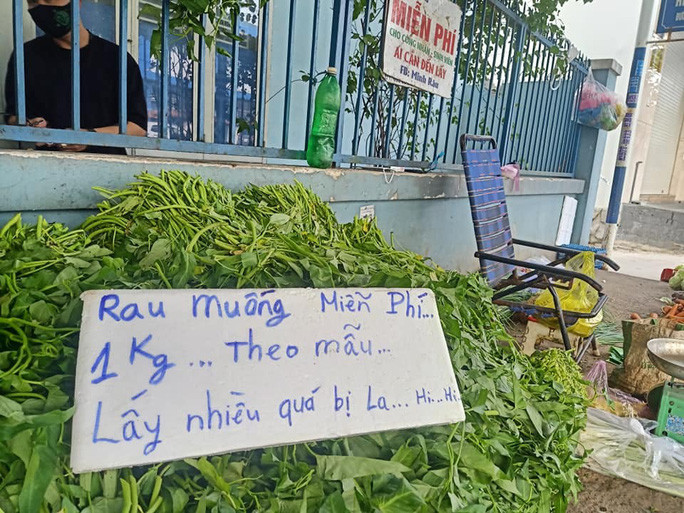 MIỄN PHÍ
CHO CÔNG NHÂN, SINH VIÊN
AI CẦN ĐẾN LẤY
FB: Minh Râu
Rau Muống Miễn Phí...
1 Kg... Theo mẫu...
Lấy nhiều quá bị La... Hi..Hi.